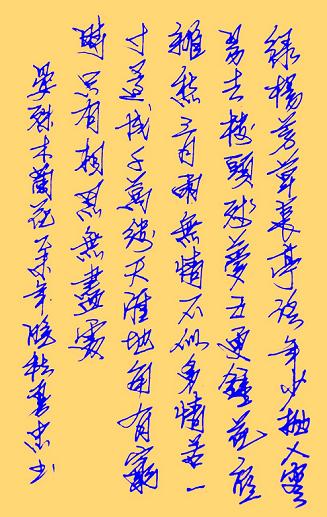 綠楊芳草長亭路年少拋人容
易去樓頭殘夢五更鐘花底
離愁三月雨無情不似多情苦一
寸還成千萬縷天涯地角有窮
時只有相思無盡處
晏殊木蘭花乙未年晚秋忠书